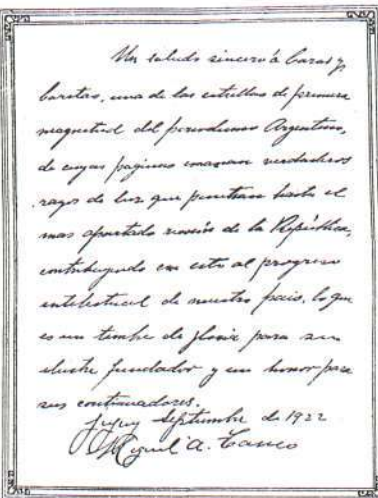 Un saludo sincero á Caras y
Caretas, una de las estrellas de primera
magnitud del periodismo Argentino,
de cuyas paginas emanan verdaderos
rayos de luz que penetran hasta el
mas apartado rincón de la República,
contribuyendo con esto al progreso
intelectual de nuestro pais, lo que
es un timbre de gloria para su
ilustre fundador y un honor para
sus continuadores.
Jujuy Septiembre de 1922
Miguel A. Tanco